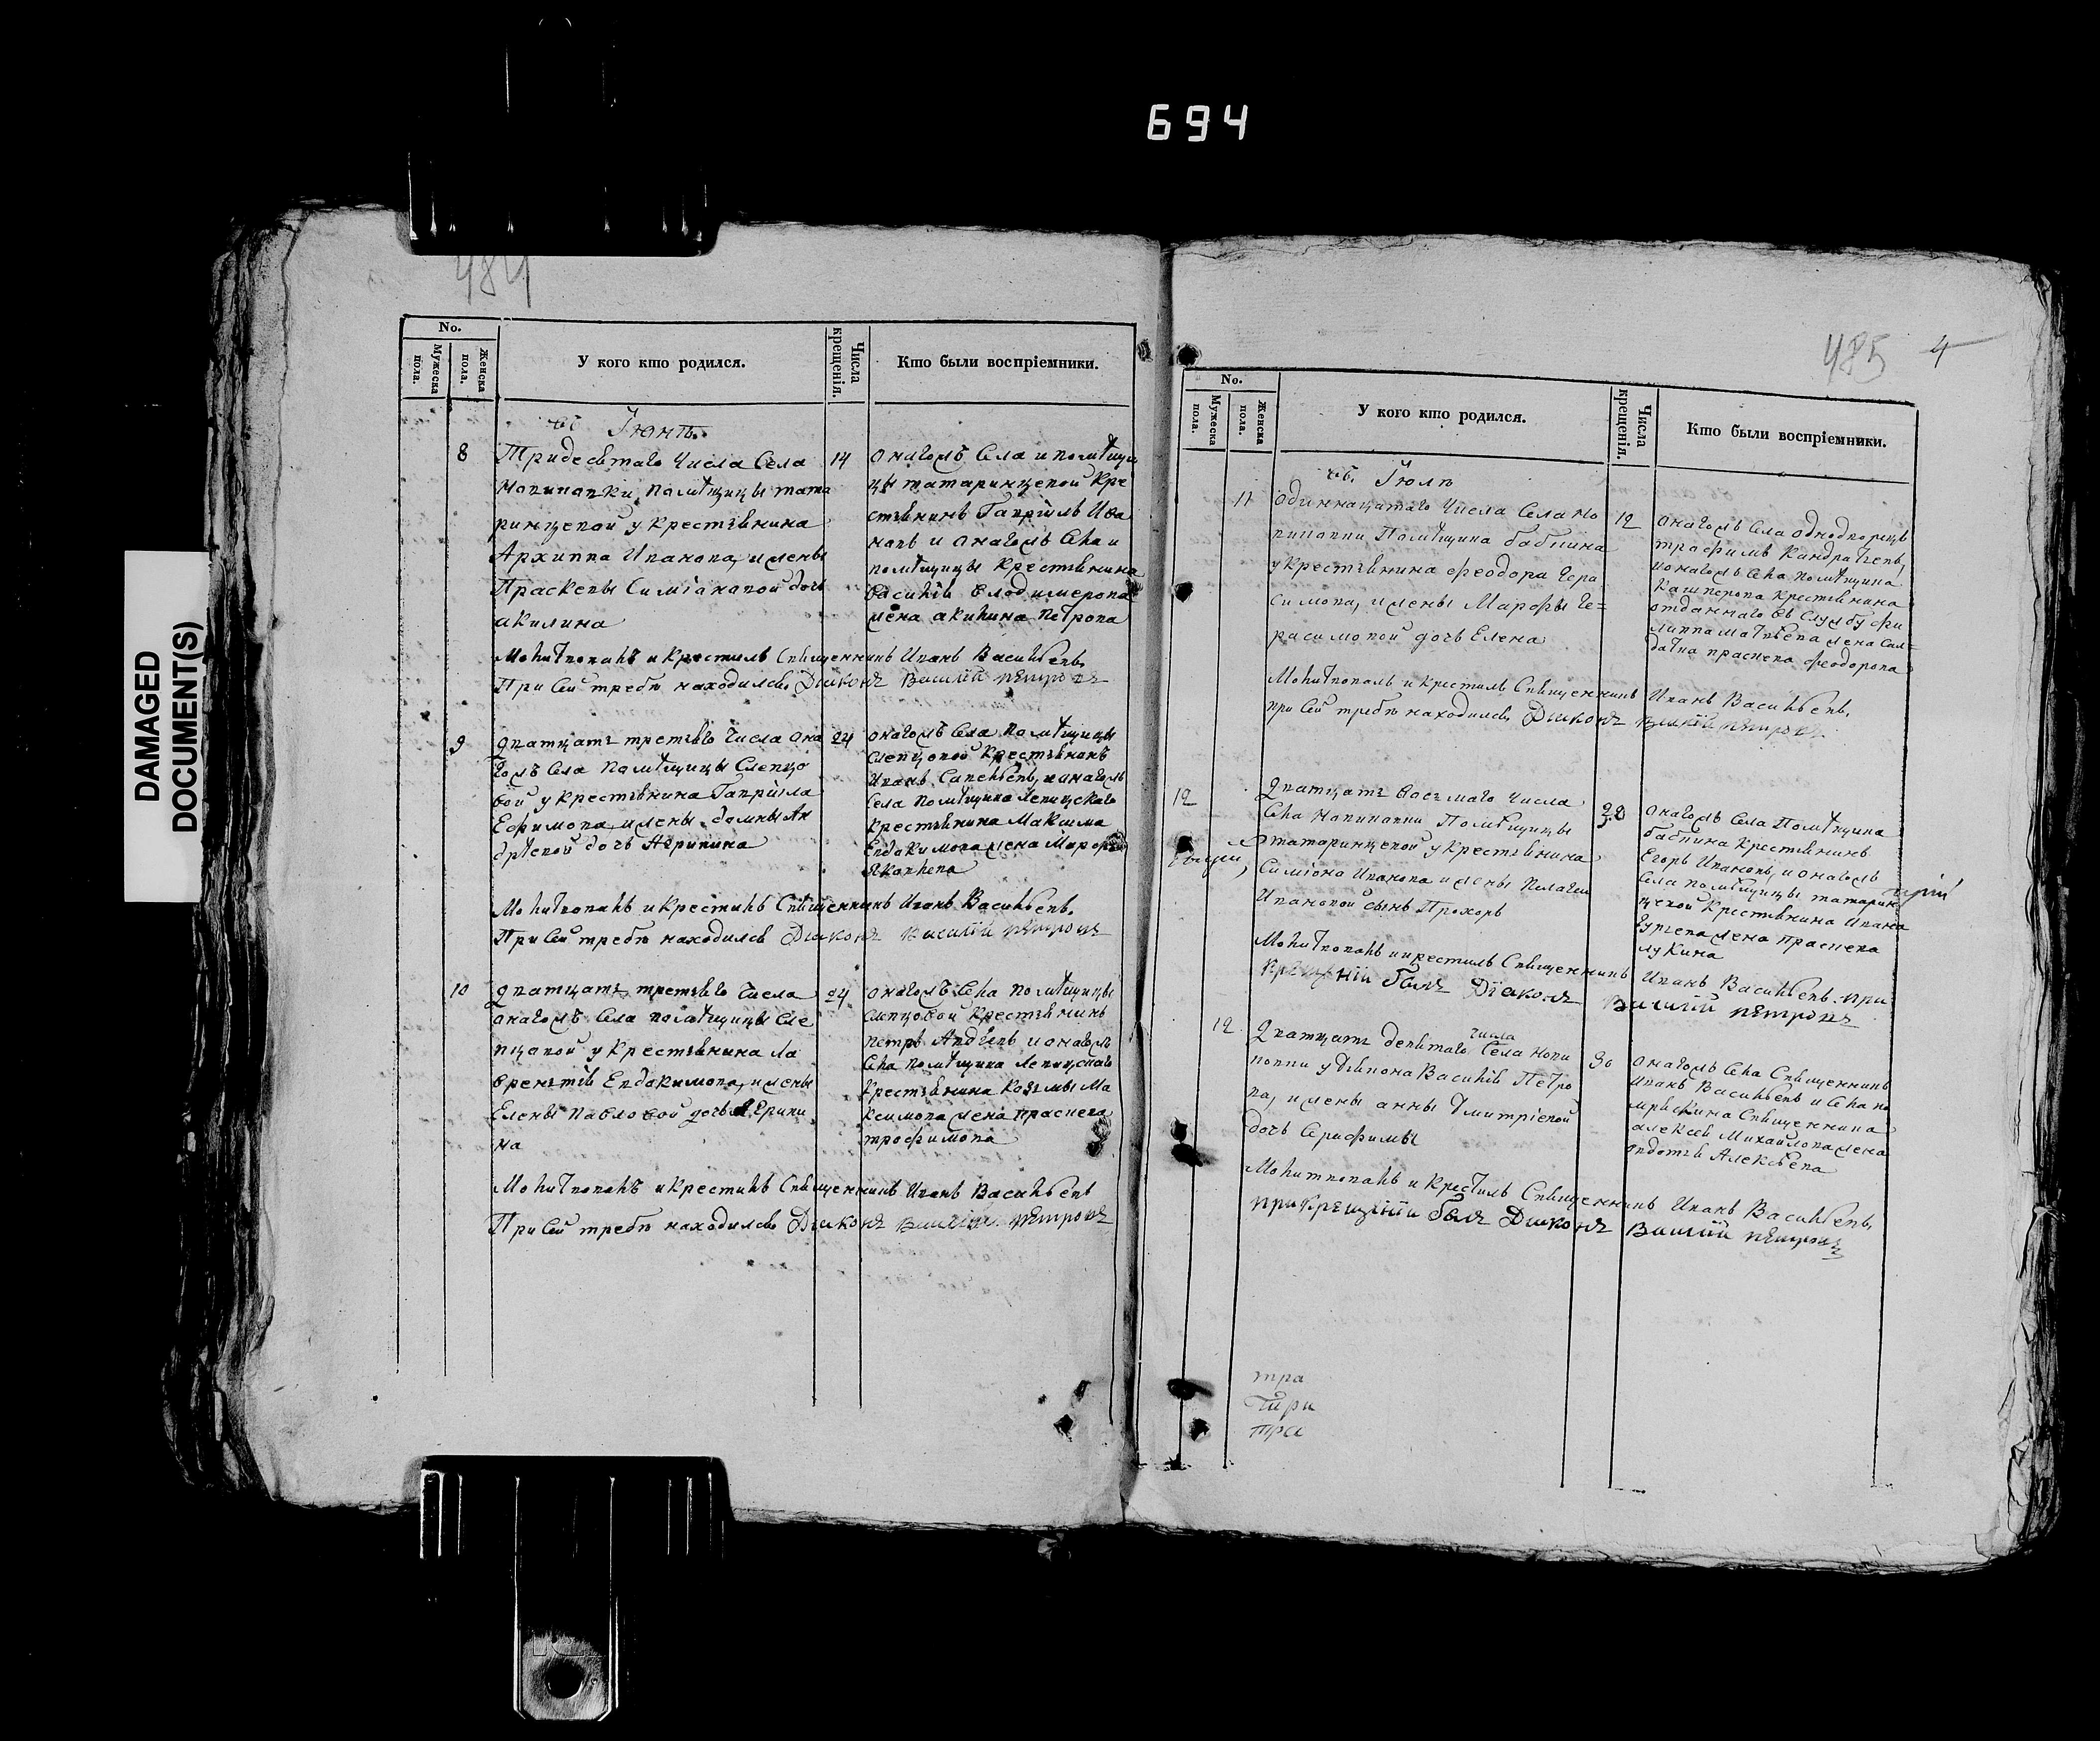 694
DAMAGED
DOCUMENT(S)
484
No.
Мужеска пола.
Женска пола.
У кого кто родился.
Числа крещенія.
Кто были воспріемники.
въ Іюнѣ.
8
Тридесятаго Числа Села
Новиповки Помѣщицы тата
ринцевой у крестьянина
Архиппа Иванова, и жены
Праскевы Симіановой дочь
акилина
14
онагожъ Села и помѣщи
цы татаринцевой кре
стьянинъ Гавріилъ Ива
новъ и онагожъ Села и
помѣщицы крестьянина
Василія Влодимерова
жена акилина Петрова
Молитвовалъ и крестилъ Священникъ Иванъ Васильевъ.
При сей требѣ находился Діаконъ Василій Петровъ
9
дватцать третьяго Числа она
гожъ Села Помѣщицы Слепцо
вой у крестьянина Гавріила
Ефимова, и жены домны Ан
дрѣевой дочь Агрипина
24
онагожъ Села Помѣщицы
Слепцовой Крестьянинъ
Иванъ Савельевъ, и онагожъ
Села Помѣщика Левицскаго
крестьянина Максима
Евдакимова жена Марфа
Яковлева
Молитвовалъ и крестилъ Священникъ Иванъ Васильевъ.
При сей требѣ находился Діаконъ Василій Петровъ
10
дватцать третьяго Числа
онагожъ Села помѣщицы Сле
пцовой у крестьянина Ла
врентія Евдакимова, и жены
Елены Павловой дочь Агрипи
на
24
онагожъ Села помѣщицы
Слепцовой Крестьянинъ
Петръ Андреевъ и онагожъ
Села Помѣщика Левицскаго
крестьянина Козьмы Ма
ксимова жена праскева
трофимова
Молитвовалъ и крестилъ Священникъ Иванъ Васильевъ
При сей требѣ находился Діаконъ Василій Петровъ
485 4
No.
Мужеска пола.
Женска пола.
У кого кто родился.
Числа крещенія.
Кто были воспріемники.
въ Іюлѣ
11
одиннацатаго Числа Села Но
виповки Помѣщика бабкина
у крестьянина феодора Гера
симова, и жены Марфы Ге=
расимовой дочь Елена
12
онагожъ Села Однодворецъ
трофимъ Кандратьевъ,
и онагожъ Села помѣщика
Кашперова крестьянина
отданнаго въ Службу фи
липпа матвѣева жена сал=
датка праскева феодорова
Молитвовалъ и крестилъ Священникъ Иванъ Васильевъ.
при сей требѣ находился Діаконъ Василій Петровъ
12
Дватцать Восьмаго Числа
Села Новиповки Помѣщицы
татаринцевой у крестьянина
Симіона Иванова и жены Пелагеи
Ивановой сынъ Прохоръ
29
онагожъ Села Помѣщика
бабкина крестьянинъ
Егоръ Ивановъ, и онагожъ
Села помѣщицы татарин
цевой крестьянина Ивана
жена праскева
лукина
Молитвовалъ и крестилъ Священникъ Иванъ Васильевъ. при
крещеніи былъ Діаконъ Василій Петровъ
12
Дватцать девятаго числа Села Нови
повки у дьякона Василія Петро
ва, и жены анны Дмитріевой
дочь Серафимы
30
онагожъ Села Священникъ
Иванъ Васильевъ и Села
Священника
алексея Михаилова жена
евдотья Алексѣева
Молитвовалъ и крестилъ Священникъ Иванъ Васильевъ,
при крещеніи былъ Діаконъ Василій Петровъ
тра
при
тра